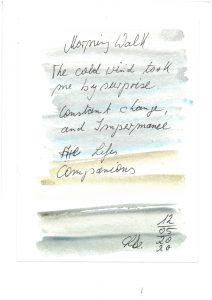 Morning Walk
The cold wind took
me by surprise
Constant change,
and Impermanence
Life's
Companions
12
05
20
20